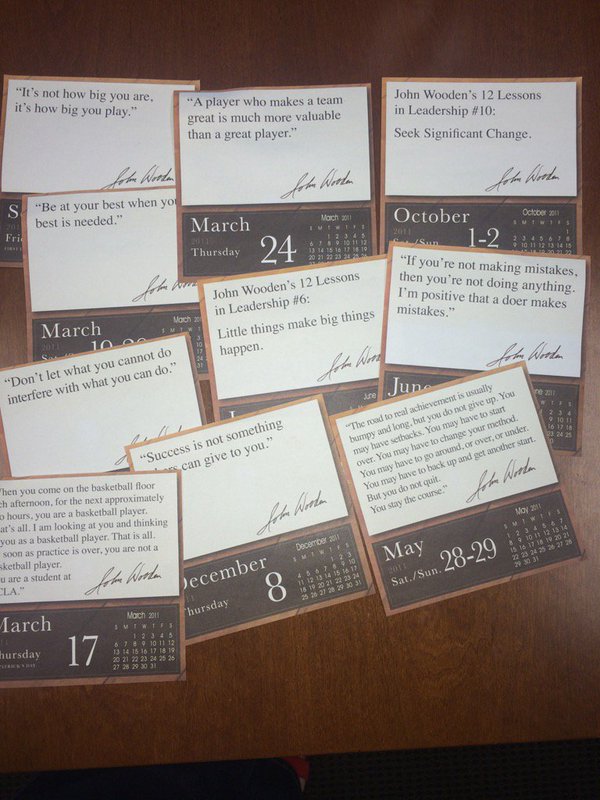 “It’s not how big you are,
it’s how big you play.”
John Wooden
“A player who makes a team
great is much more valuable
than a great player.”
John Wooden
March
2011
Thursday
24
March 2011
S M T W T F S
1 2 3 4 5
6 7 8 9 10 11 12
13 14 15 16 17 18 19
20 21 22 23 24 25 26
John Wooden’s 12 Lessons
in Leadership #10:
Seek Significant Change.
John Wooden
October
2011
Sat./Sun.
1-2
October 2011
S M T W T F S
“Be at your best when you
best is needed.”
John
March
2011
“If you’re not making mistakes,
then you’re not doing anything.
I’m positive that a doer makes
mistakes.”
John Wooden
June
2011
John Wooden’s 12 Lessons
in Leadership #6:
Little things make big things
happen.
John
June
“Don’t let what you cannot do
interfere with what you can do.”
John Wooden
“Success is not something
can give to you.”
John Wooden
December
2011
Thursday
8
December 2011
S M T W T F S
1 2 3
4 5 6 7 8 9 10
11 12 13 14 15 16 17
18 19 20 21 22 23 24
25 26 27 28 29 30 31
“The road to real achievement is usually
bumpy and long, but you do not give up. You
may have setbacks. You may have to start
over. You may have to change your method.
You may have to go around, or over, or under.
You may have to back up and get another start.
But you do not quit.
You stay the course.”
John Wooden
May
2011
Sat./Sun.
28-29
May 2011
S M T W T F S
1 2 3 4 5 6 7
8 9 10 11 12 13 14
15 16 17 18 19 20 21
22 23 24 25 26 27 28
29 30 31
When you come on the basketball floor
each afternoon, for the next approximately
two hours, you are a basketball player.
That’s all. I am looking at you and thinking
of you as a basketball player. That is all.
As soon as practice is over, you are not a
basketball player.
You are a student at
UCLA.”
John Wooden
March
2011
Thursday
17
March 2011
S M T W T F S
1 2 3 4 5
6 7 8 9 10 11 12
13 14 15 16 17 18 19
20 21 22 23 24 25 26
27 28 29 30 31